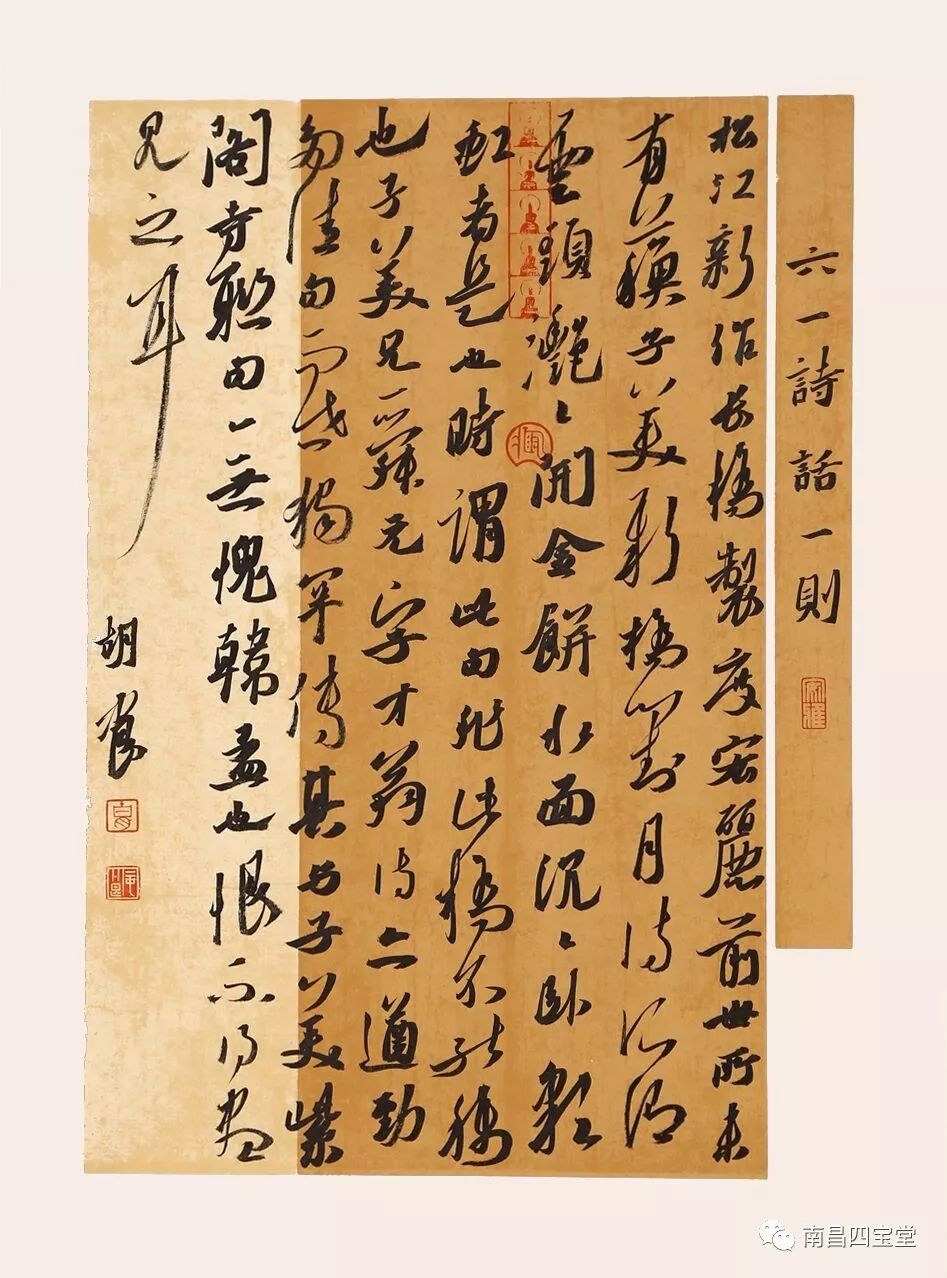 六一詩話一則
松江新作長橋製度宏麗前世所未
有蘇子美新橋對月詩所謂
雲頭灩〻開金餅水面沉〻臥彩
虹者是也時謂此句非此橋不能稱
也子美兄舜元字才翁詩亦遒勁
多佳句而世獨罕傳其與子美紫
閣寺聯句無愧韓孟也恨不得盡
見之耳
胡
南昌四宝堂